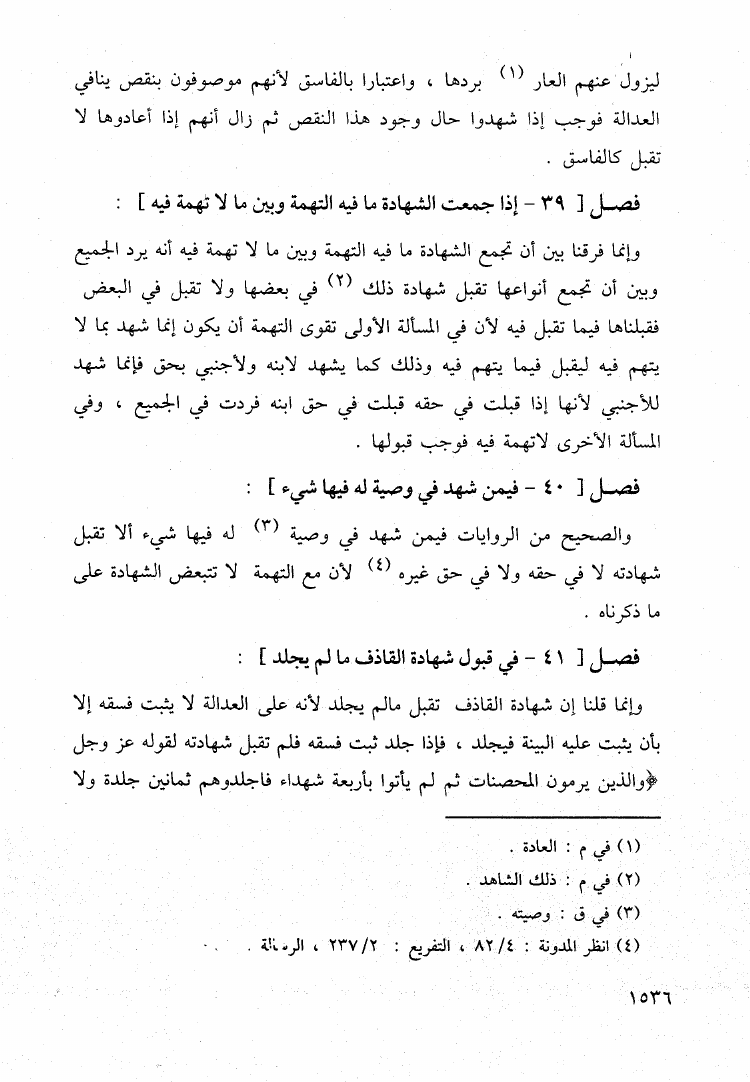 ليزول عنهم العار (١) بردها ، واعتبارا بالفاسق لأنهم موصوفون بنقص ينافي
العدالة فوجب إذا شهدوا حال وجود هذا النقص ثم زال أنهم إذا أعادوها لا
تقبل كالفاسق .
فصل [ ٣٩ - إذا جمعت الشهادة ما فيه التهمة وبين ما لا تهمة فيه ] :
وإنما فرقنا بين أن تجمع الشهادة ما فيه التهمة وبين ما لا تهمة فيه أنه يرد الجميع
وبين أن تجمع أنواعها تقبل شهادة ذلك (٢) في بعضها ولا تقبل في البعض
فقبلناها فيما تقبل فيه لأن في المسألة الأولى تقوى التهمة أن يكون إنما شهد بما لا
يتهم فيه ليقبل فيما يتهم فيه وذلك كما يشهد لابنه ولأجنبي بحق فإنما شهد
للأجنبي لأنها إذا قبلت في حقه قبلت في حق ابنه فردت في الجميع ، وفي
المسألة الأخرى لاتهمة فيه فوجب قبولها .
فصل [ ٤٠ - فيمن شهد في وصية له فيها شيء ] :
والصحيح من الروايات فيمن شهد في وصية (٣) له فيها شيء ألا تقبل
شهادته لا في حقه ولا في حق غيره (٤) لأن مع التهمة لا تتبعض الشهادة على
ما ذكرناه .
فصل [ ٤١ - في قبول شهادة القاذف ما لم يجلد ] :
وإنما قلنا إن شهادة القاذف تقبل مالم يجلد لأنه على العدالة لا يثبت فسقه إلا
بأن يثبت عليه البينة فيجلد ، فإذا جلد ثبت فسقه فلم تقبل شهادته لقوله عز وجل
﴿والذين يرمون المحصنات ثم لم يأتوا بأربعة شهداء فاجلدوهم ثمانين جلدة ولا
(١) في م : العادة .
(٢) في م : ذلك الشاهد .
(٣) في ق : وصيته .
(٤) انظر المدونة : ٨٢/٤ ، التفريع : ٢٣٧/٢ ، الرسالة
١٥٣٦